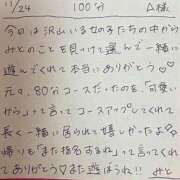 11/24 100分 A様
今日は沢山いる女の子たちの中から
みとのことを見つけて選んで一緒に
遊んでくれて本当にありがとう♡♡
元々、80分コースだったのを「可愛い
から」って言ってコースアップしてくれて
長く一緒に居られて嬉しかったよ🥺
帰りも「また指名するね」って言ってくれ
てありがとう♡また遊ぼうね!! みと